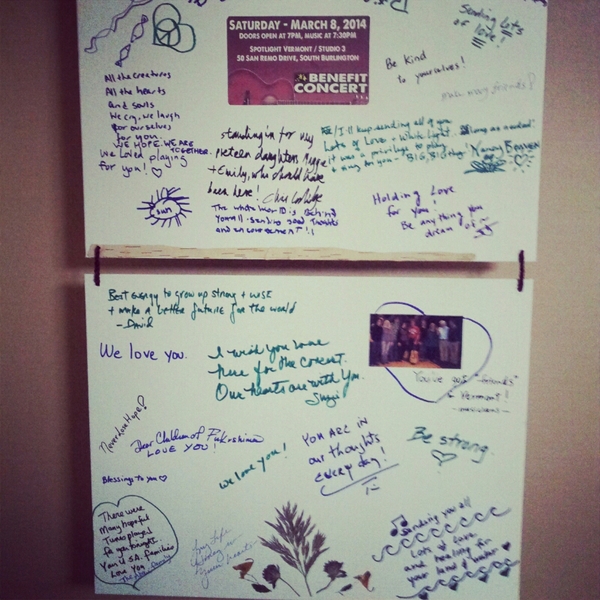 SATURDAY - MARCH 8, 2014
DOORS OPEN AT 7PM, MUSIC AT 7:30PM
SPOTLIGHT VERMONT / STUDIO 3
50 SAN REMO DRIVE, SOUTH BURLINGTON
BENEFIT
CONCERT
Sending lots
of love!
Be kind
to yourselves!
many friends!
All the creatures
All the hearts
and souls
We cry, we laugh
for ourselves
for you.
WE HOPE. WE ARE
TOGETHER.
We Loved playing
for you!
SUN
standing in for my
preteen daughters Maggie
+ Emily, who should have
been here!
The whole is behind
You all - sending good thoughts
and encouragement!!
I'll keep sending all of you
Lots of Love + White Light. as long as needed.
it was a privilege to play
+ sing for you - BIG, BIG Hug.
Nancy
Holding Love
for you!
Be anything you
dream of
Best energy to grow up strong + wise
+ make a better future for the world
- David
We love you.
I wish you were
here for the concert.
Our hearts are with you.
You've got "friends"
in Vermont!
Never Lose Hope!
Dear Children of Fukushima
LOVE YOU!
we love you!
YOU ARE IN
our thoughts
every day!
Be strong.
Blessings to you
There were
Many hopeful
Tunes played
for you tonight.
Your U.S.A. families
Love You
Sending you all
Lots of love
and healing for
your land & water